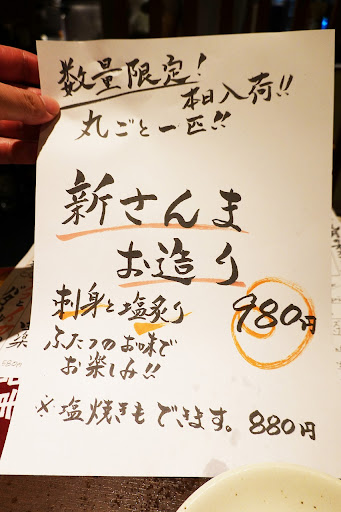 数量限定!
本日入荷!!
丸ごと一匹!!
新さんま
お造り
刺身と塩炙り 980円
ふたつのお味で
お楽しみ!!
※塩焼きもできます。880円